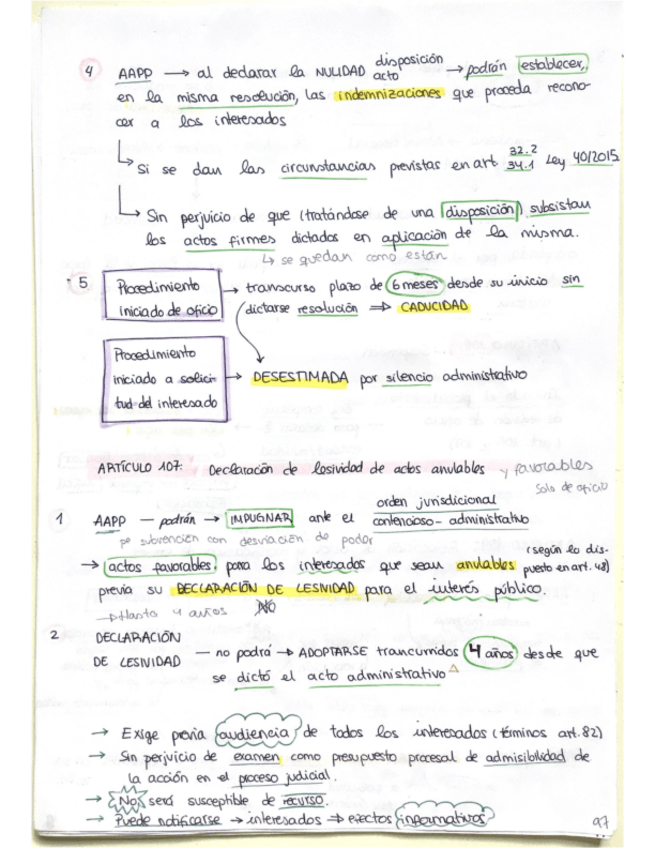 4 AAPP → al declarar la NULIDAD disposición acto → podrán establecer,
en la misma resolución, las indemnizaciones que proceda recono-
cer a los interesados
Si se dan las circunstancias previstas en art 32.2 34.1 Ley 40/2015
Sin perjuicio de que (tratándose de una disposición) subsistan
los actos firmes dictados en aplicación de la misma.
↳ se quedan como están
5 Procedimiento iniciado de oficio → transcurso plazo de 6 meses desde su inicio sin
dictarse resolución ⇒ CADUCIDAD
Procedimiento
iniciado a solici-
tud del interesado → DESESTIMADA por silencio administrativo
ARTÍCULO 107: Declaración de lesividad de actos anulables y favorables
Solo de oficio
1 AAPP — podrán → IMPUGNAR ante el orden jurisdiccional contencioso-administrativo
subvención con desviación de poder
→ actos favorables para los interesados que sean anulables (según lo dis-
puesto en art. 48)
previa su DECLARACIÓN DE LESNIDAD para el interés público.
→ Hasta 4 años NO
2 DECLARACIÓN
DE LESNIDAD — no podrá → ADOPTARSE trancurridos 4 años desde que
se dictó el acto administrativo
→ Exige previa audiencia de todos los interesados (términos art. 82)
→ Sin perjuicio de examen como presupuesto procesal de admisibilidad de
la acción en el proceso judicial.
→ No será susceptible de recurso.
→ Puede notificarse → interesados ⇒ efectos informativos
97